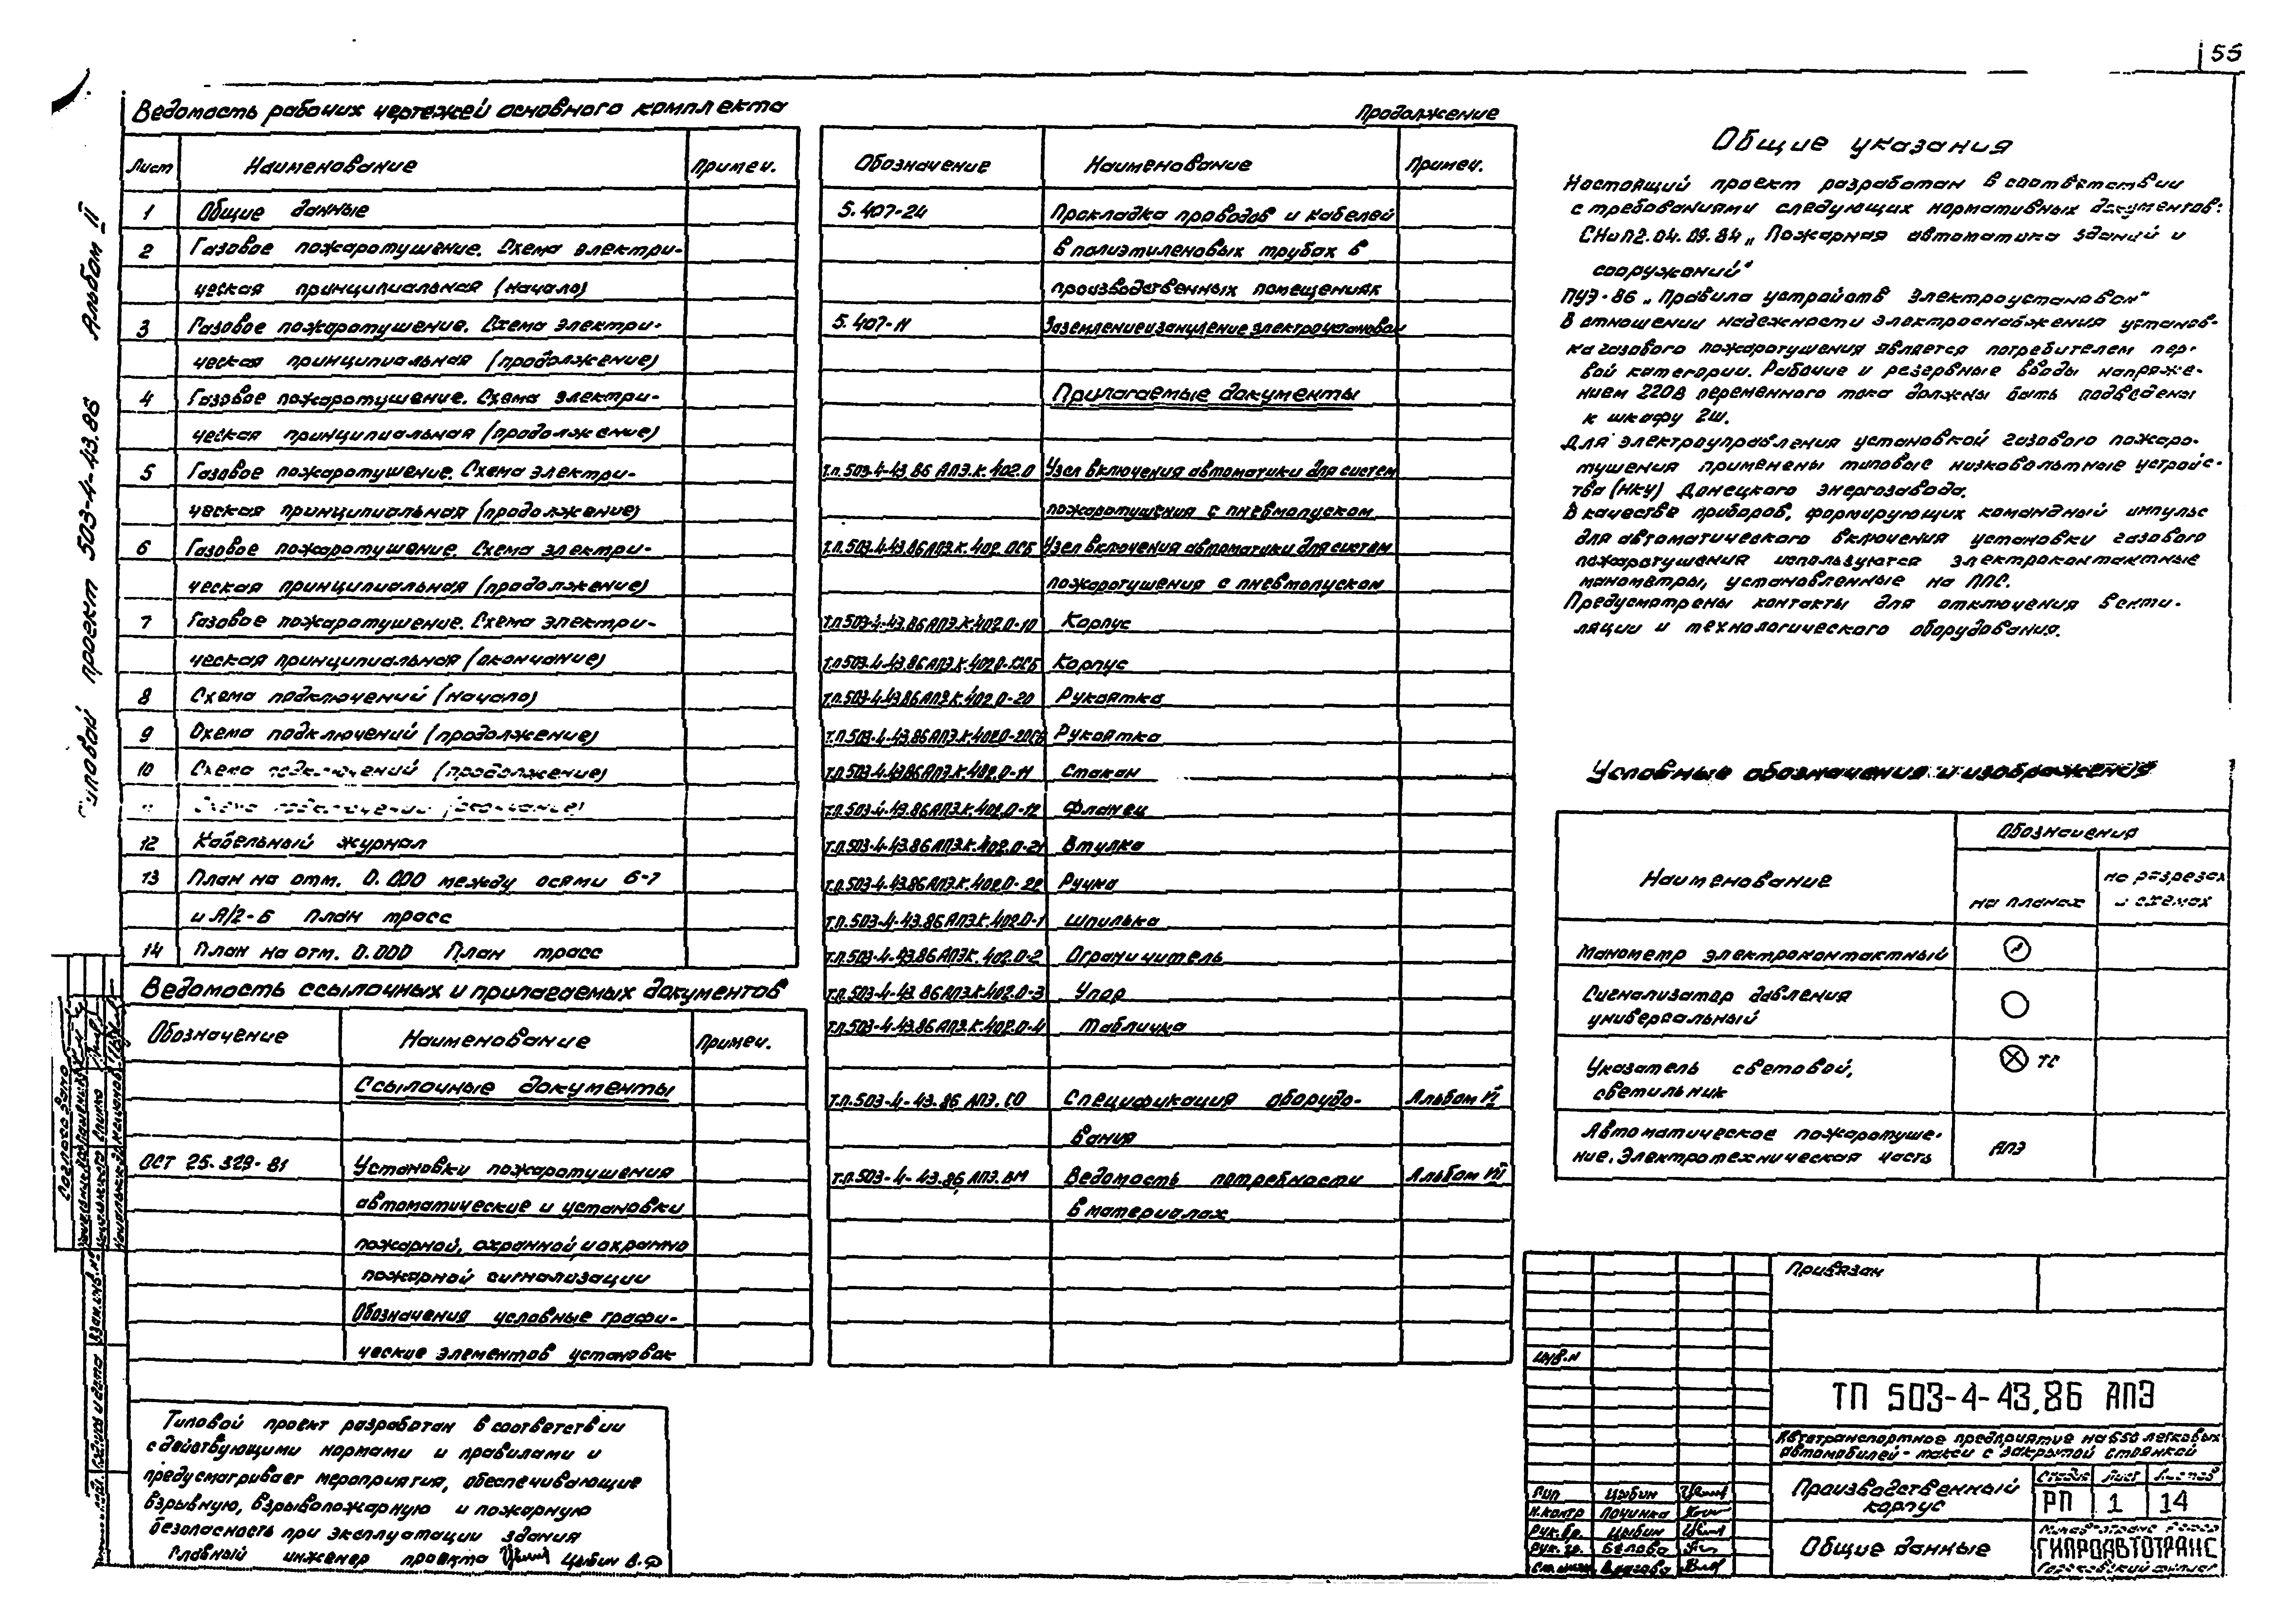 55
Альбом II
Типовой проект 503-4-43.86
Ведомость рабочих чертежей основного комплекта
Лист Наименование Примеч.
1 Общие данные
2 Газовое пожаротушение. Схема электри-
ческая принципиальная (начало)
3 Газовое пожаротушение. Схема электри-
ческая принципиальная (продолжение)
4 Газовое пожаротушение. Схема электри-
ческая принципиальная (продолжение)
5 Газовое пожаротушение. Схема электри-
ческая принципиальная (продолжение)
6 Газовое пожаротушение. Схема электри-
ческая принципиальная (продолжение)
7 Газовое пожаротушение. Схема электри-
ческая принципиальная (окончание)
8 Схема подключений (начало)
9 Схема подключений (продолжение)
10 Схема подключений (продолжение)
11 Схема подключений (окончание)
12 Кабельный журнал
13 План на отм. 0.000 между осями 6-7
и А/2-Б План трасс
14 План на отм. 0.000 План трасс
Ведомость ссылочных и прилагаемых документов
Обозначение Наименование Примеч.
Ссылочные документы
ОСТ 25.329-81 Установки пожаротушения
автоматические и установки
пожарной, охранной и охранно
пожарной сигнализации
Обозначения условные графи-
ческие элементов установок
Типовой проект разработан в соответствии
с действующими нормами и правилами и
предусматривает мероприятия, обеспечивающие
взрывную, взрывопожарную и пожарную
безопасность при эксплуатации здания
Главный инженер проекта Цыбин В.Ф
Продолжение
Обозначение Наименование Примеч.
5.407-24 Прокладка проводов и кабелей
в полиэтиленовых трубах в
производственных помещениях
5.407-11 Заземление и зануление электроустановок
Прилагаемые документы
Т.п.503-4-43.86 АПЭ.К.402.0 Узел включения автоматики для систем
пожаротушения с пневмопуском
Т.П.503-4-43.86 АПЭ.К.402.0СБ Узел включения автоматики для систем
пожаротушения с пневмопуском
Т.П.503-4-43.86 АПЭ.К.402.0-10 Корпус
Т.П.503-4-43.86 АПЭ.К.402.0-10СБ Корпус
Т.П.503-4-43.86 АПЭ.К.402.0-20 Рукоятка
Т.П.503-4-43.86 АПЭ.К.402.0-20СБ Рукоятка
Т.П.503-4-43.86 АПЭ.К.402.0-11 Стакан
Т.П.503-4-43.86 АПЭ.К.402.0-12 Фланец
Т.П.503-4-43.86 АПЭ.К.402.0-21 Втулка
Т.П.503-4-43.86 АПЭ.К.402.0-22 Ручка
Т.П.503-4-43.86 АПЭ.К.402.0-1 Шпилька
Т.П.503-4-43.86 АПЭ.К.402.0-2 Ограничитель
Т.П.503-4-43.86 АПЭ.К.402.0-3 Упор
Т.П.503-4-43.86 АПЭ.К.402.0-4 Табличка
Т.П.503-4-43.86 АПЭ.СО Спецификация оборудо- Альбом
вания
Т.П.503-4-43.86 АПЭ.ВМ Ведомость потребности Альбом
в материалах
Общие указания
Настоящий проект разработан в соответствии
с требованиями следующих нормативных документов:
СНиП2.04.09.84 „Пожарная автоматика зданий и
сооружений"
ПУЭ-86 „Правила устройств электроустановок"
В отношении надежности электроснабжения установ-
ка газового пожаротушения является потребителем пер-
вой категории. Рабочие и резервные вводы напряже-
нием 220В переменного тока должны быть подведены
к шкафу 2Ш.
Для электроуправления установкой газового пожаро-
тушения применены типовые низковольтные устройс-
тва (НКУ) Донецкого энергозавода.
В качестве приборов, формирующих командный импульс
для автоматического включения установки газового
пожаротушения используются электроконтактные
манометры, установленные на ППС.
Предусмотрены контакты для отключения венти-
ляции и технологического оборудования.
Условные обозначения и изображения
Наименование Обозначения
на планах на разрезах и схемах
Манометр электроконтактный
Сигнализатор давления
универсальный
Указатель световой, ТС
светильник
Автоматическое пожаротуше-
ние. Электротехническая часть АПЭ
Привязан
Инв.N
ТП 503-4-43.86 АПЭ
Автотранспортное предприятие на 650 легковых
автомобилей-такси с закрытой стоянкой
Производственный
корпус
Стадия Лист Листов
РП 1 14
Общие данные
Минавтотранс РСФСР
ГИПРОАВТОТРАНС
Горьковский филиал
ГИП Цыбин
Н.контр Починка
Рук.бр. Цыбин
Рук.гр. Белова
Согласовано